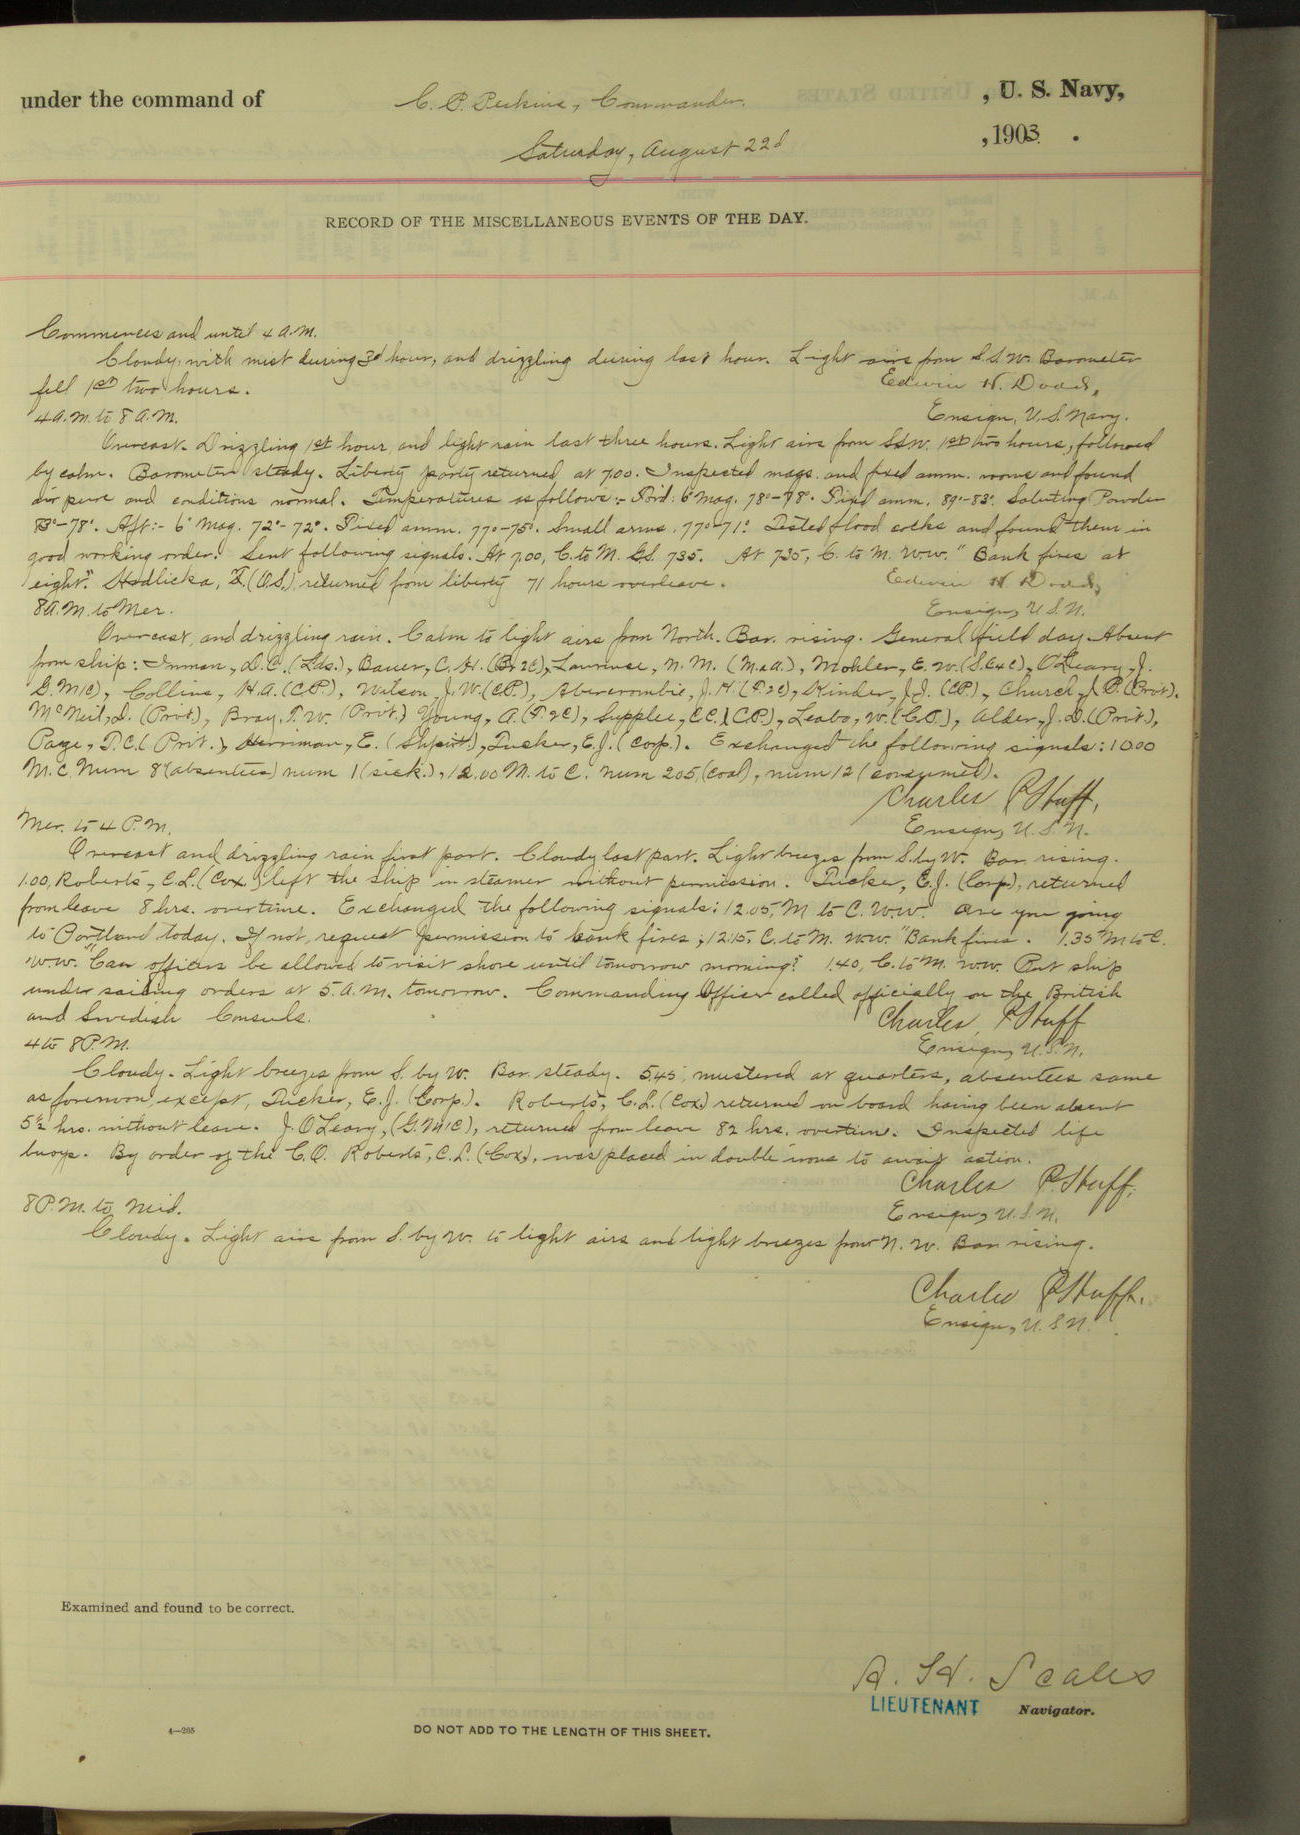 under the command of C. P. Perkins, Commander. , U. S. Navy,
Saturday, August 22d , 1903.
RECORD OF THE MISCELLANEOUS EVENTS OF THE DAY.
Commences and until 4 A.M.
Cloudy, with mist during 3d hour, and drizzling during last hour. Light airs from S.S.W. Barometer
fell 1st two hours. Edwin H. Dodd,
4 A.M. to 8 A.M. Ensign, U.S. Navy.
Overcast. Drizzling 1st hour, and light rain last three hours. Light airs from SSW. 1st two hours, followed
by calm. Barometer steady. Liberty party returned at 7.00. Inspected mags. and fixed amm. rooms and found
air pure and conditions normal. Temperatures as follows:- For'd. 6" Mag. 78°-78°. Fixed amm. 89°-83°. Saluting Powder
83°-78°. Aft:- 6" Mag. 72°-72°. Fixed amm. 77°-75°. Small arms 77°-71°. Tested flood cocks and found them in
good working order. Sent following signals. At 7.00, C. to M. G.S. 735. At 7.35, C. to M. W.W. "Bank fires at
eight". Hodlicka, F. (O.S.) returned from liberty 71 hours overleave. Edwin H Dodd,
8 A.M. to Mer. Ensign, U.S.N.
Overcast, and drizzling rain. Calm to light airs from North. Bar. rising. General field day. Absent
from ship: Inman, D.C. (Lds.), Bauer, C.H. (B 2C), Lawrence, N.M. (M.a.a.), Mohler, E.W. (S.E.&C), O'Leary, J.
G.M1C), Collins, H.A. (C.P.), Watson, J.W. (C.P.), Abercrombie, J.H. (F.2C), Kinder, J.J. (C.P.), Church, P. (Privt).
McNeil, D. (Privt), Bray, T.W. (Privt.) Young, A. (F.2C), Supplee, C.C. (C.P.), Leabo, W. (C.P.), Alder, J.D. (Privt),
Page, T.C. (Privt.), Herriman, E. (Shpwt.), Tucker, E.J. (Corp.). Exchanged the following signals: 10.00
M.C Num 8 (absentees) num 1 (sick.), 12.00 M. to C. num 205, (coal), num 12 (consumed).
Charles P. Huff,
Mer. to 4 P.M. Ensign, U.S.N.
Overcast and drizzling rain first part. Cloudy last part. Light breezes from S. by W. Bar. rising.
1.00, Roberts, C.L. (Cox.) left the ship in steamer without permission. Tucker, E.J. (Corp), returned
from leave 8 hrs. overtime. Exchanged the following signals: 12.05, M to C. W.W. Are you going
to Portland today. If not, request permission to bank fires; 12.15, C. to M. W.W. "Bank fires. 1.35 M to C.
W.W. "Can officers be allowed to visit shore until tomorrow morning? 1.40, C. to M. W.W. Put ship
under sailing orders at 5. A.M. tomorrow. Commanding Officer called officially on the British
and Swedish Consuls. Charles P. Huff
4 to 8 P.M. Ensign, U.S.N.
Cloudy. Light breezes from S. by W. Bar. steady. 5.45, mustered at quarters, absentees same
as forenoon except, Tucker, E.J. (Corp.). Roberts, C.L. (Cox) returned on board having been absent
5½ hrs. without leave. J. O'Leary, (G.M1C), returned from leave 82 hrs. overtime. Inspected life
buoys. By order of the C.O. Roberts, C.L. (Cox), was placed in double irons to await action.
Charles P. Huff,
8 P.M. to Mid. Ensign, U.S.N.
Cloudy. Light airs from S. by W. to light airs and light breezes from N.W. Bar rising.
Charles P. Huff.
Ensign, U.S.N.
Examined and found to be correct.
A. H. Scales
LIEUTENANT Navigator.
4—205
DO NOT ADD TO THE LENGTH OF THIS SHEET.